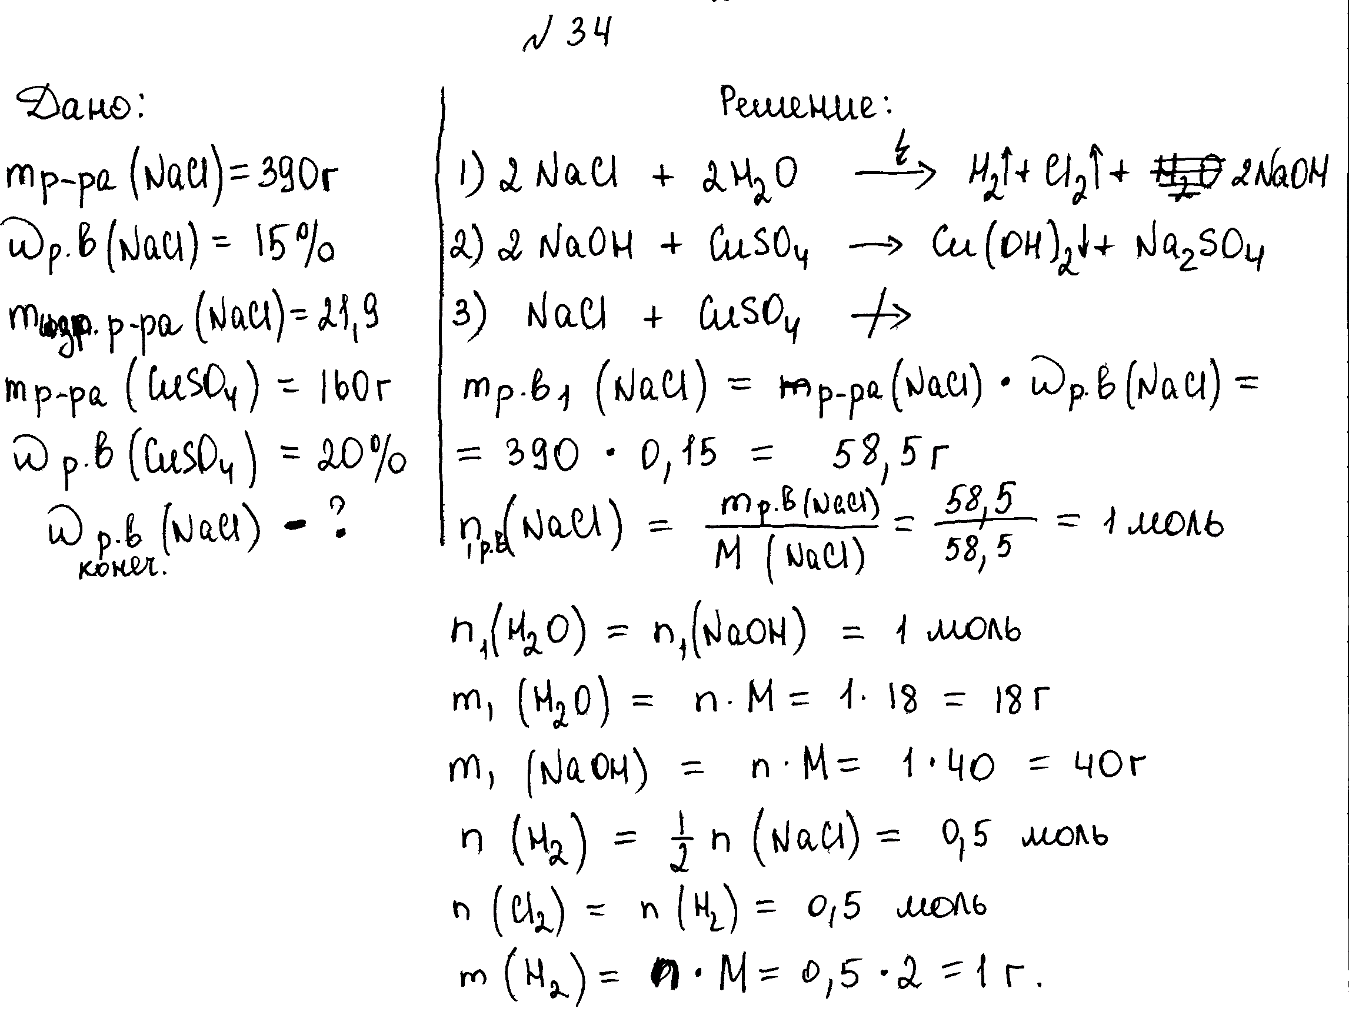 № 34
Дано:
mр-ра (NaCl) = 390г
ωр.в (NaCl) = 15%
р-ра (NaCl) = 21,9
mр-ра (CuSO₄) = 160г
ωр.в (CuSO₄) = 20%
ωр.в (NaCl) - ?
конеч.
Решение:
1) 2 NaCl + 2H₂O → H₂↑ + Cl₂↑ + 2NaOH
2) 2 NaOH + CuSO₄ → Cu(OH)₂↓ + Na₂SO₄
3) NaCl + CuSO₄ ↛
mр.в₁ (NaCl) = mр-ра (NaCl) · ωр.в (NaCl) =
= 390 · 0,15 = 58,5г
n₁р.в(NaCl) = mр.в(NaCl) / M (NaCl) = 58,5 / 58,5 = 1 моль
n₁(H₂O) = n₁(NaOH) = 1 моль
m₁ (H₂O) = n · M = 1 · 18 = 18г
m₁ (NaOH) = n · M = 1 · 40 = 40г
n (H₂) = 1/2 n (NaCl) = 0,5 моль
n (Cl₂) = n (H₂) = 0,5 моль
m (H₂) = n · M = 0,5 · 2 = 1г.